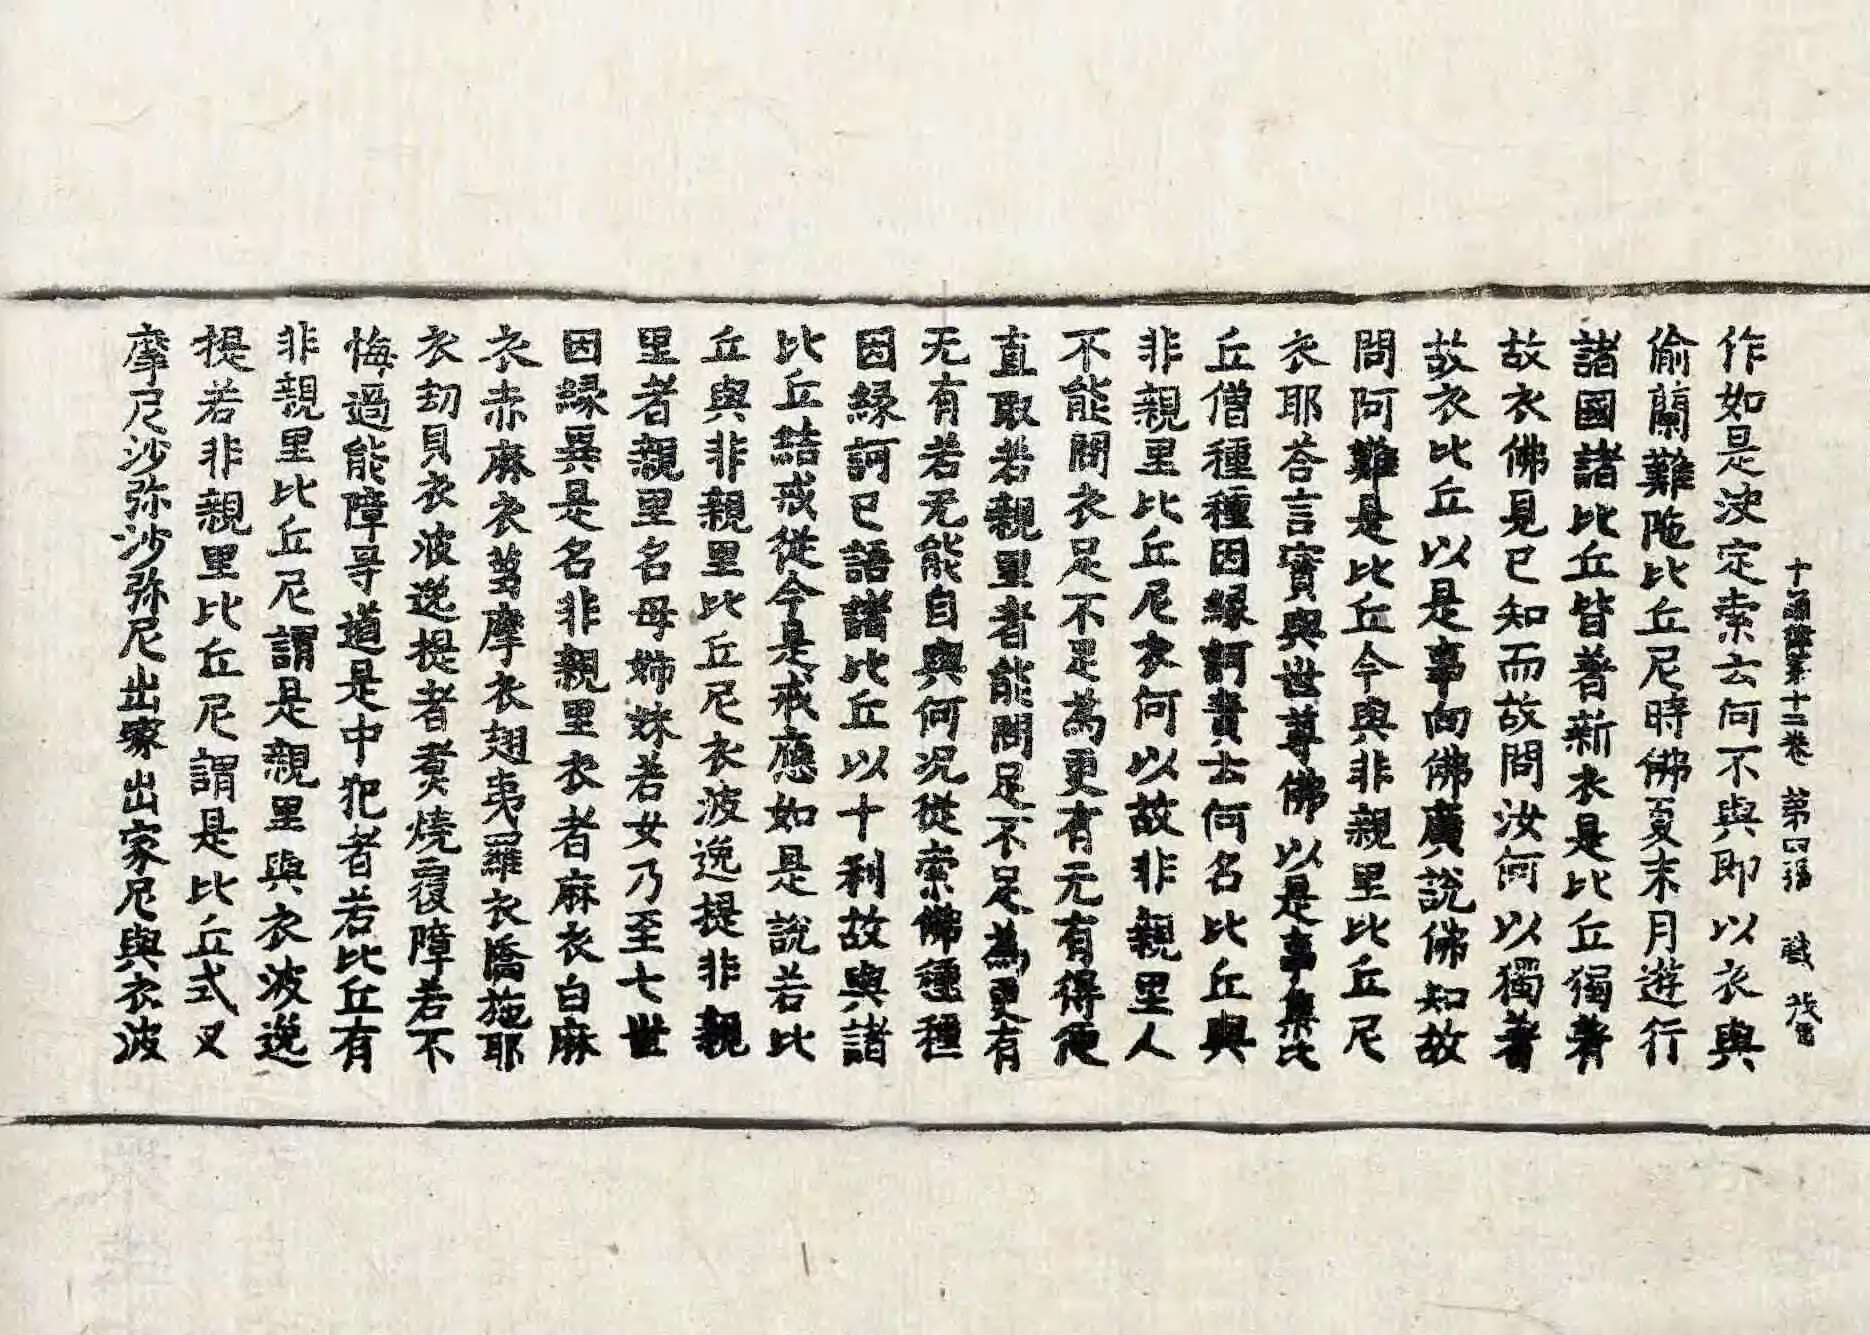 十誦律第十二卷 第四張 職
作如是決定索去何不與即以衣與
偷蘭難陁比丘尼時佛夏末月遊行
諸國諸比丘皆著新衣是比丘獨著
故衣佛見已知而故問汝何以獨著
故衣比丘以是事向佛廣說佛知故
問阿難是比丘今與非親里比丘尼
衣耶荅言實與世尊佛以是事集比
丘僧種種因緣訶責云何名比丘與
非親里比丘尼衣何以故非親里人
不能問衣足不足為更有无有得便
直取若親里者能問足不足為更有
无有若无能自與何況從索佛種種
因緣訶已語諸比丘以十利故與諸
比丘結戒從今是戒應如是說若比
丘與非親里比丘尼衣波逸提非親
里者親里名母姉妹若女乃至七世
因緣異是名非親里衣者麻衣白麻
衣赤麻衣芻摩衣翅夷羅衣憍施耶
衣劫貝衣波逸提者煑燒覆障若不
悔過能障㝵道是中犯者若比丘有
非親里比丘尼謂是親里與衣波逸
提若非親里比丘尼謂是比丘式叉
摩尼沙弥沙弥尼出家出家尼與衣波